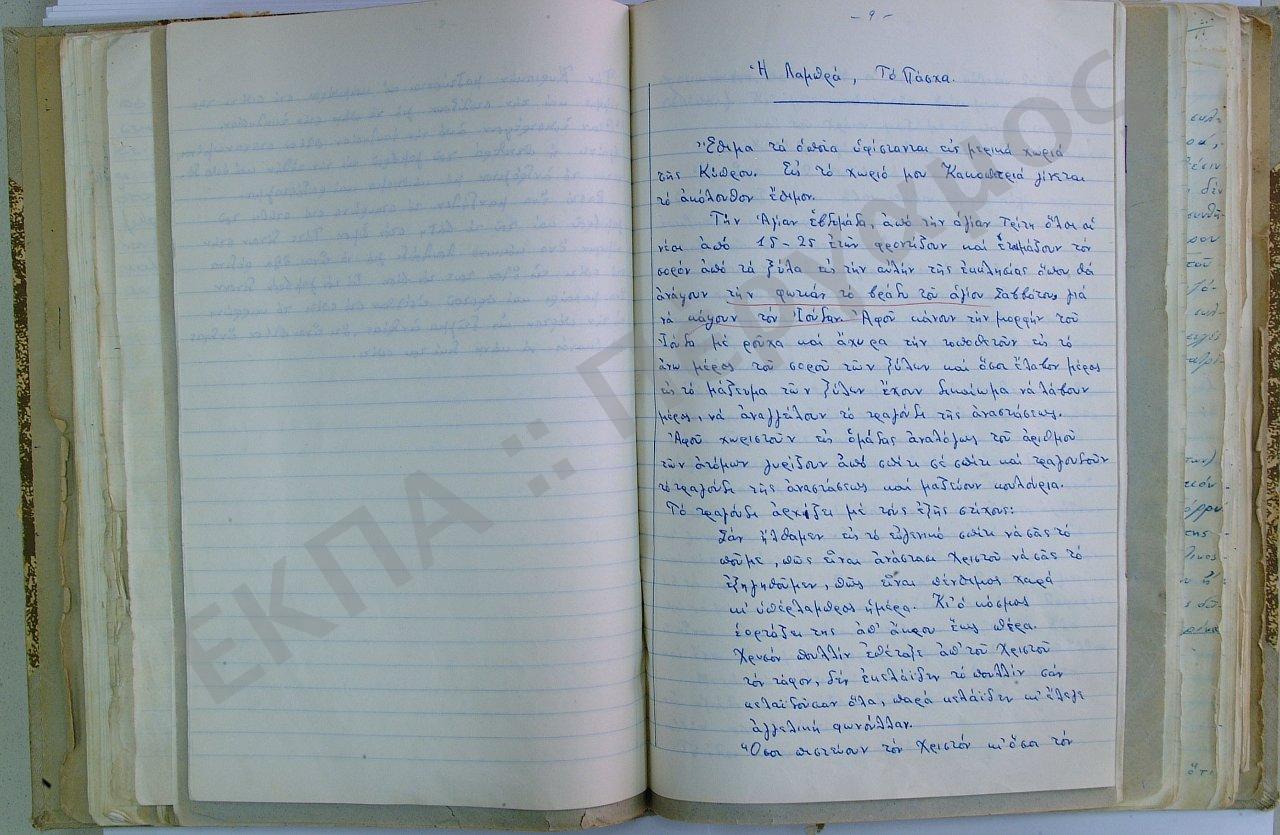 - 9 -
Ἡ Λαμπρά, Τό Πάσχα.
Ἔθιμα τά ὁποῖα ὑφίστανται εἰς μερικά χωριά
τῆς Κύπρου. Εἰς τό χωριό μου Κακοπετριά γίνεται
τό ἀκόλουθον ἔθιμον.
Τήν Ἁγίαν ἑβδομάδα, ἀπό τήν ἁγίαν Τρίτη ὅλοι οἱ
νέοι ἀπό 15-25 ἐτῶν φροντίζουν καί ἑτοιμάζουν τόν
σορόν ἀπό τά ξύλα εἰς τήν αὐλήν τῆς ἐκκλησίας ὅπου θά
ἀνάψουν τήν φωτιάν τό βράδυ τοῦ ἁγίου Σαββάτου, γιά
νά κάψουν τόν Ἰούδαν. Ἀφοῦ κάνουν τήν μορφήν τοῦ
Ἰούδα μέ ροῦχα καί ἄχυρα τήν τοποθετοῦν εἰς τό
ἄνω μέρος τοῦ σοροῦ τῶν ξύλων καί ὅσοι ἔλαβον μέρος
εἰς τό μάζευμα τῶν ξύλων ἔχουν δικαίωμα νά λάβουν
μέρος, νά ἀναγγείλουν τό τραγούδι τῆς ἀναστάσεως.
Ἀφοῦ χωριστοῦν εἰς ὁμάδας ἀναλόγως τοῦ ἀριθμοῦ
τῶν ἀτόμων γυρίζουν ἀπό σπίτι σέ σπίτι καί τραγουδοῦν
τό τραγούδι τῆς ἀναστάσεως καί μαζεύουν κουλούρια.
Τό τραγούδι ἀρχίζει μέ τούς ἑξῆς στίχους:
Σάν ἤλθαμεν εἰς τό εὐγενικό σπίτι νά σᾶς τό
ποῦμε, πῶς εἶναι ἀνάστασι Χριστοῦ νά σᾶς τό
ἐξηγηθοῦμεν, πῶς εἶναι πένθιμος χαρά
κι' ὑπέρλαμπρος ἡμέρα. Κι' ὁ κόσμος
ἑορτάζει της ἀπ' ἄκρου ἕως πέρα.
Χρυσόν πουλλίν ἐπέταξε ἀπ' τοῦ Χριστοῦ
τόν τάφον, δέν ἐκελάϊδεν τό πουλλίν σάν
κελαϊδοῦσαν ὅλα, παρά κελάϊδεν κι' ἔλεγε
ἀγγελική φωνούλλαν.
Ὅσοι πιστεύουν τόν Χριστόν κι' ὅσοι τόν
ΕΚΠΑ :: Πέργαμος